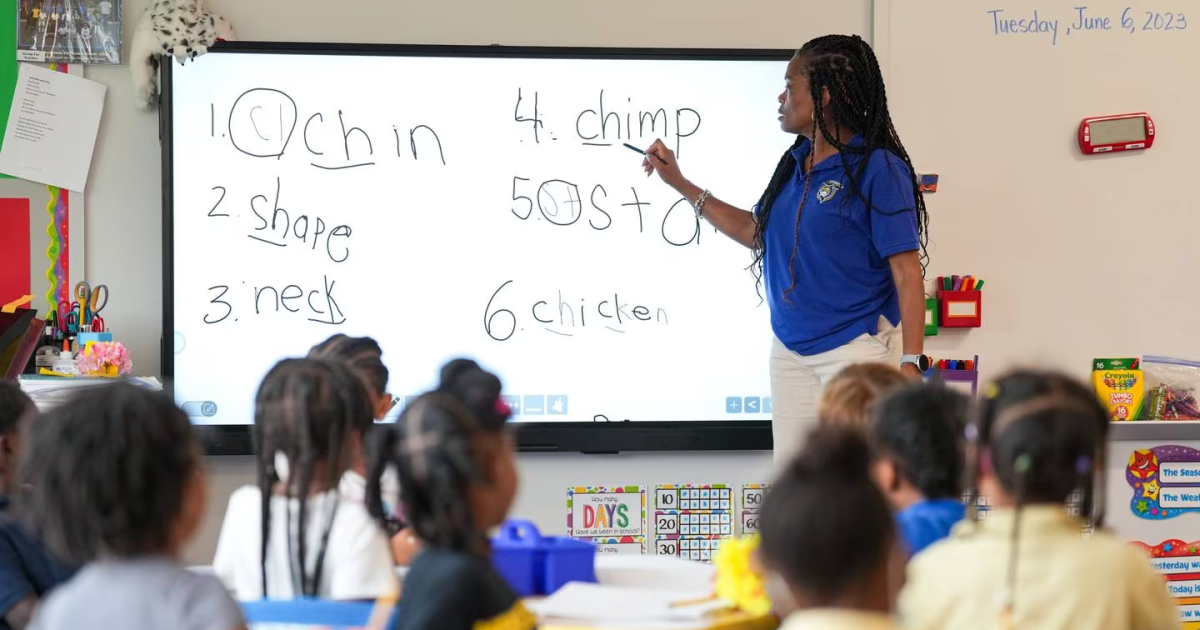 Tuesday, June 6, 2023
1. ch chin
2. shape
3. neck
4. chimp
5. st sta
6. chicken
16
Crayola
JUMBO
16
HOW MANY
DAYS
Have we been in school?
10
20
30
50
60
The Seas
The Weat
Yesterday w
Today is